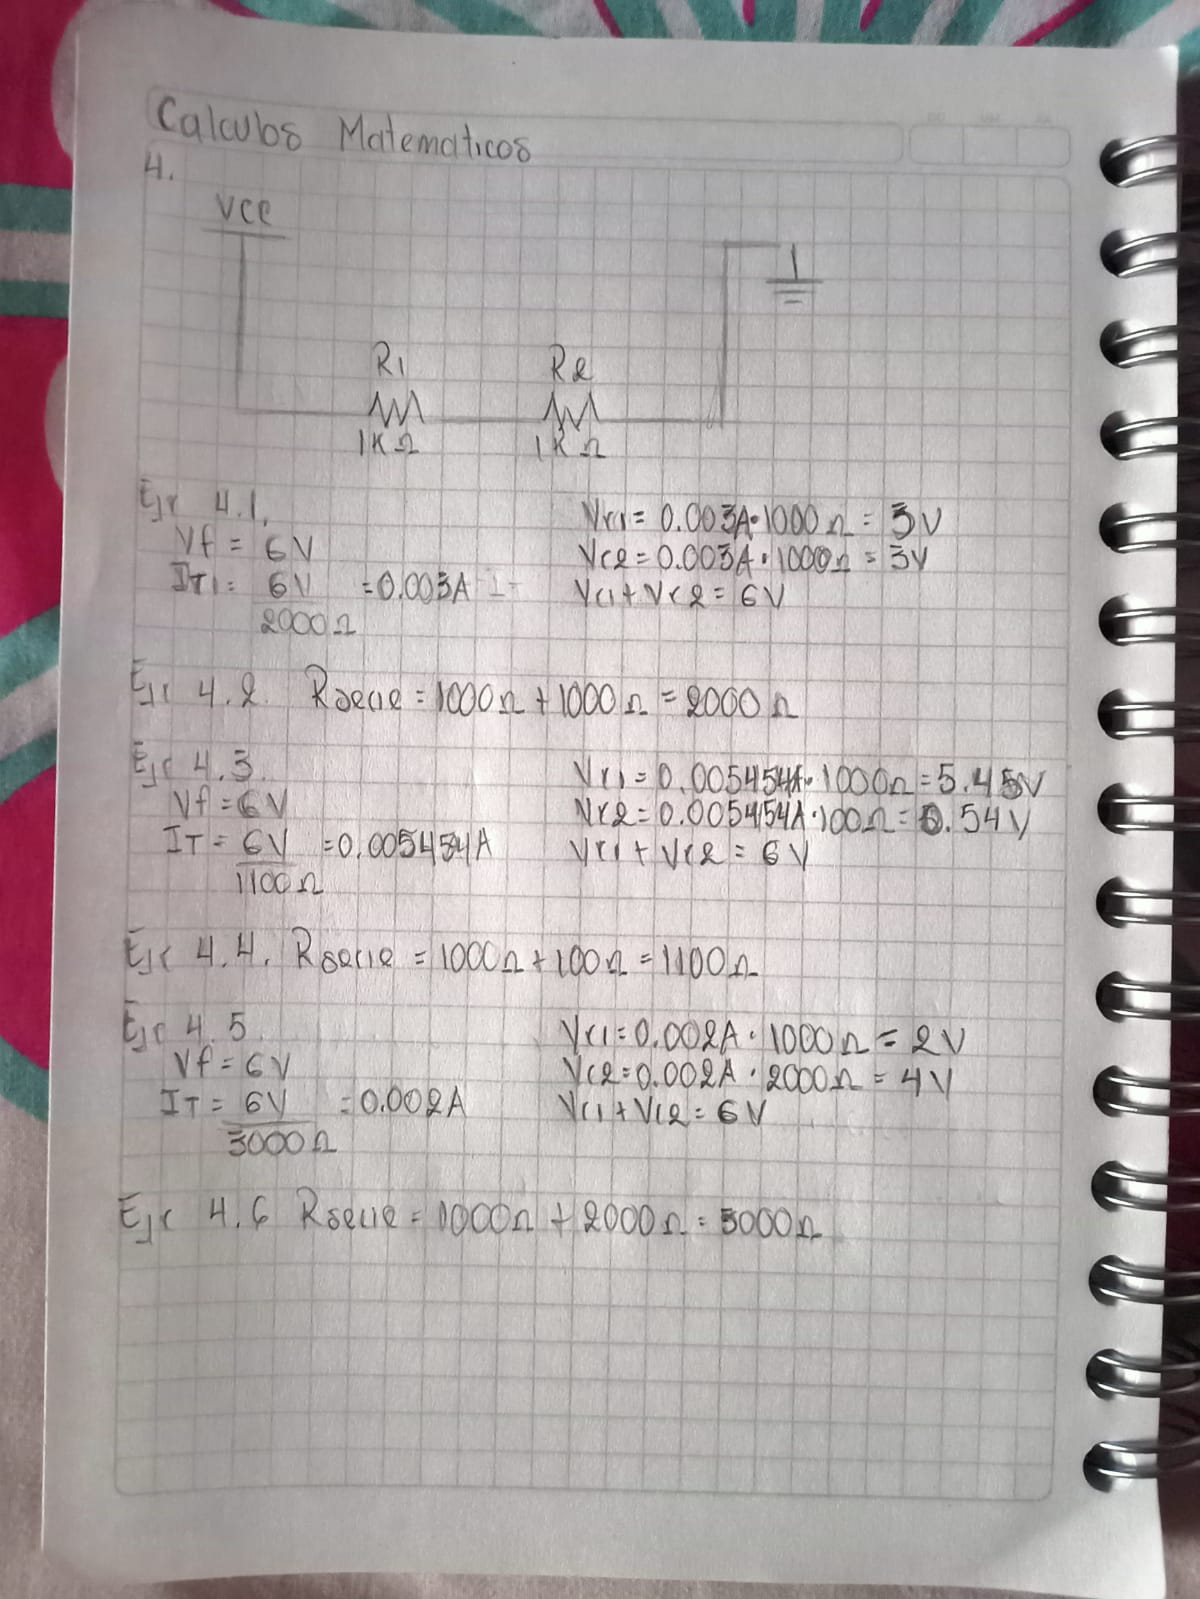 Calculos Matematicos
4.
VCC
R1 R2
1KΩ 1KΩ
Ejr 4.1.
Vf = 6V
IT1 = 6V = 0.003A
2000Ω
Vr1 = 0.003A·1000Ω = 3V
Vr2 = 0.003A·1000Ω = 3V
Vr1 + Vr2 = 6V
Ejr 4.2. Rserie = 1000Ω + 1000Ω = 2000Ω
Ejr 4.3.
Vf = 6V
IT = 6V = 0.005454A
1100Ω
Vr1 = 0.005454A·1000Ω = 5.45V
Vr2 = 0.005454A·100Ω = 0.54V
Vr1 + Vr2 = 6V
Ejr 4.4. Rserie = 1000Ω + 100Ω = 1100Ω
Ejr 4.5
Vf = 6V
IT = 6V = 0.002A
3000Ω
Vr1 = 0.002A·1000Ω = 2V
Vr2 = 0.002A·2000Ω = 4V
Vr1 + Vr2 = 6V
Ejr 4.6 Rserie = 1000Ω + 2000Ω = 3000Ω